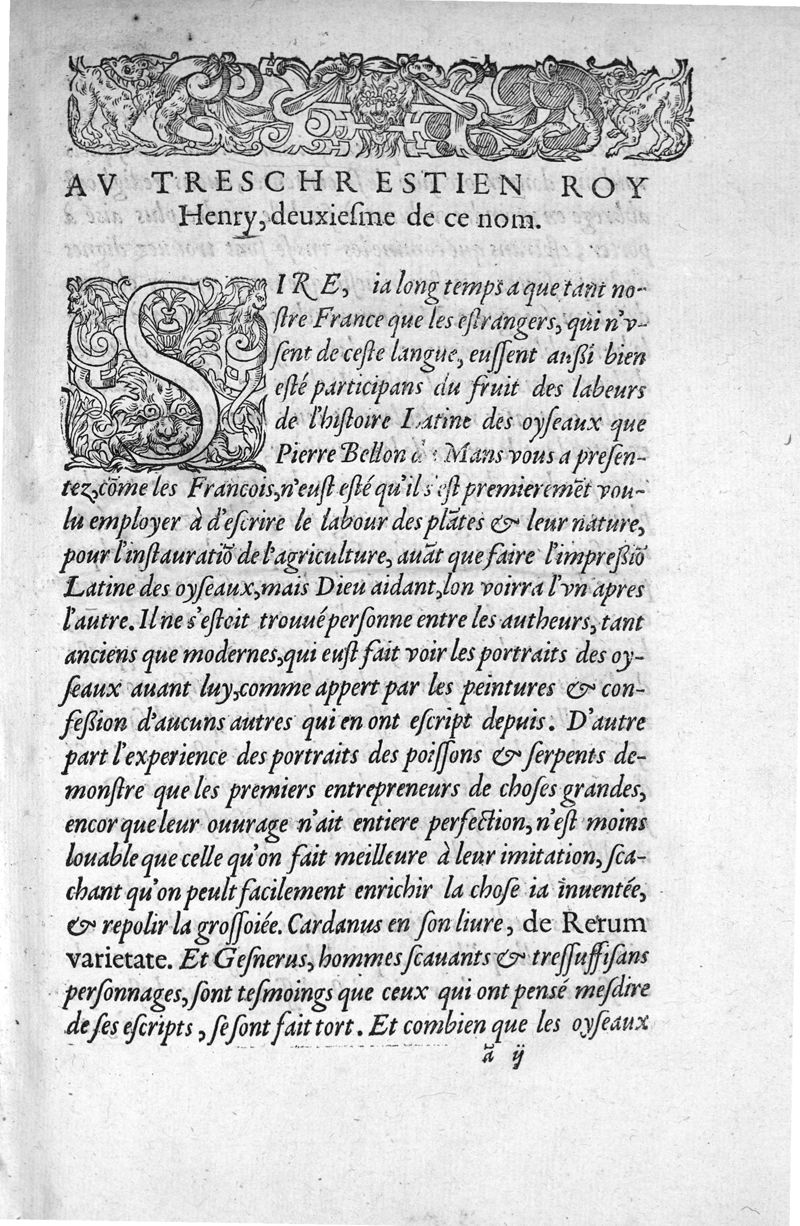 AV TRESCHRESTIEN ROY
Henry, deuxiesme de ce nom.
SIRE, ia long temps a que tant no-
ſtre France que les eſtrangers, qui n'v-
ſent de ceſte langue, euſſent auſſi bien
eſté participans du fruit des labeurs
de l'hiſtoire Latine des oyſeaux que
Pierre Bellon du Mans vous a preſen-
tez, cõme les Francois, n'euſt eſté qu'il s'eſt premieremẽt vou-
lu employer à d'eſcrire le labour des plãtes & leur nature,
pour l'inſtauratiõ de l'agriculture, auãt que faire l'impreſſiõ
Latine des oyſeaux, mais Dieu aidant, lon voirra l'vn apres
l'autre. Il ne s'eſtoit trouué perſonne entre les autheurs, tant
anciens que modernes, qui euſt fait voir les portraits des oy-
ſeaux auant luy, comme appert par les peintures & con-
feſſion d'aucuns autres qui en ont eſcript depuis. D'autre
part l'experience des portraits des poiſſons & ſerpents de-
monſtre que les premiers entrepreneurs de choſes grandes,
encor que leur ouurage n'ait entiere perfection, n'eſt moins
louable que celle qu'on fait meilleure à leur imitation, ſca-
chant qu'on peult facilement enrichir la choſe ia inuentée,
& repolir la groſſoiée. Cardanus en ſon liure, de Rerum
varietate. Et Geſnerus, hommes ſcauants & treſſuffiſans
perſonnages, ſont teſmoings que ceux qui ont penſé meſdire
de ſes eſcripts, ſe ſont fait tort. Et combien que les oyſeaux
ã ij